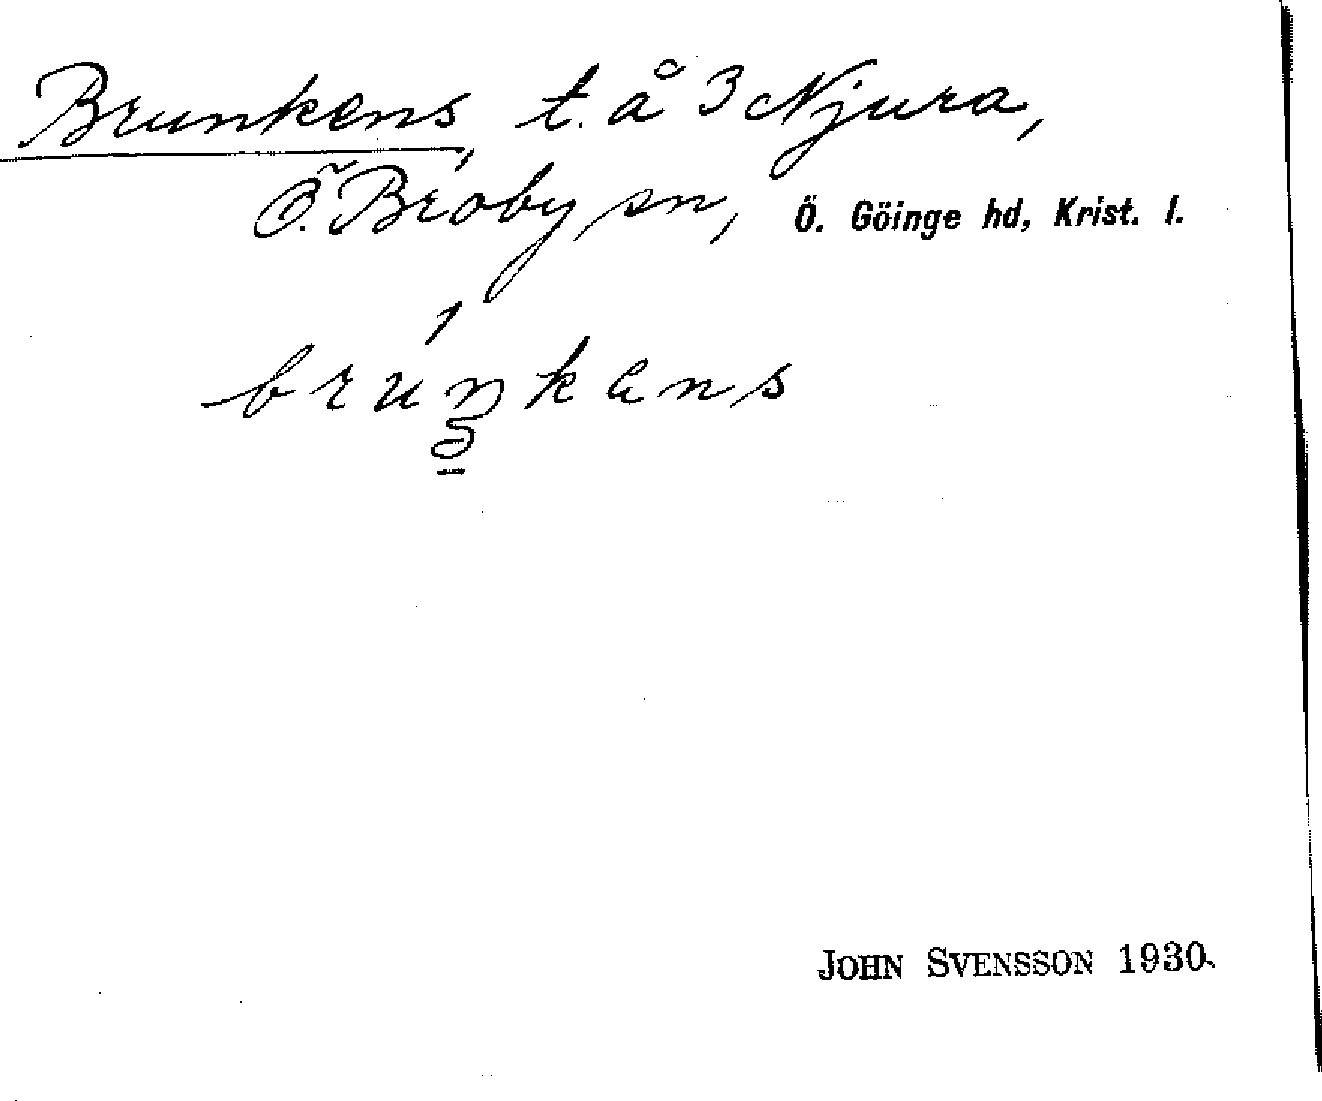 Brunkens, t. å 3 Njura,
Ö. Broby sn, Ö. Göinge hd, Krist. l.
brúŋkens
JOHN SVENSSON 1930.